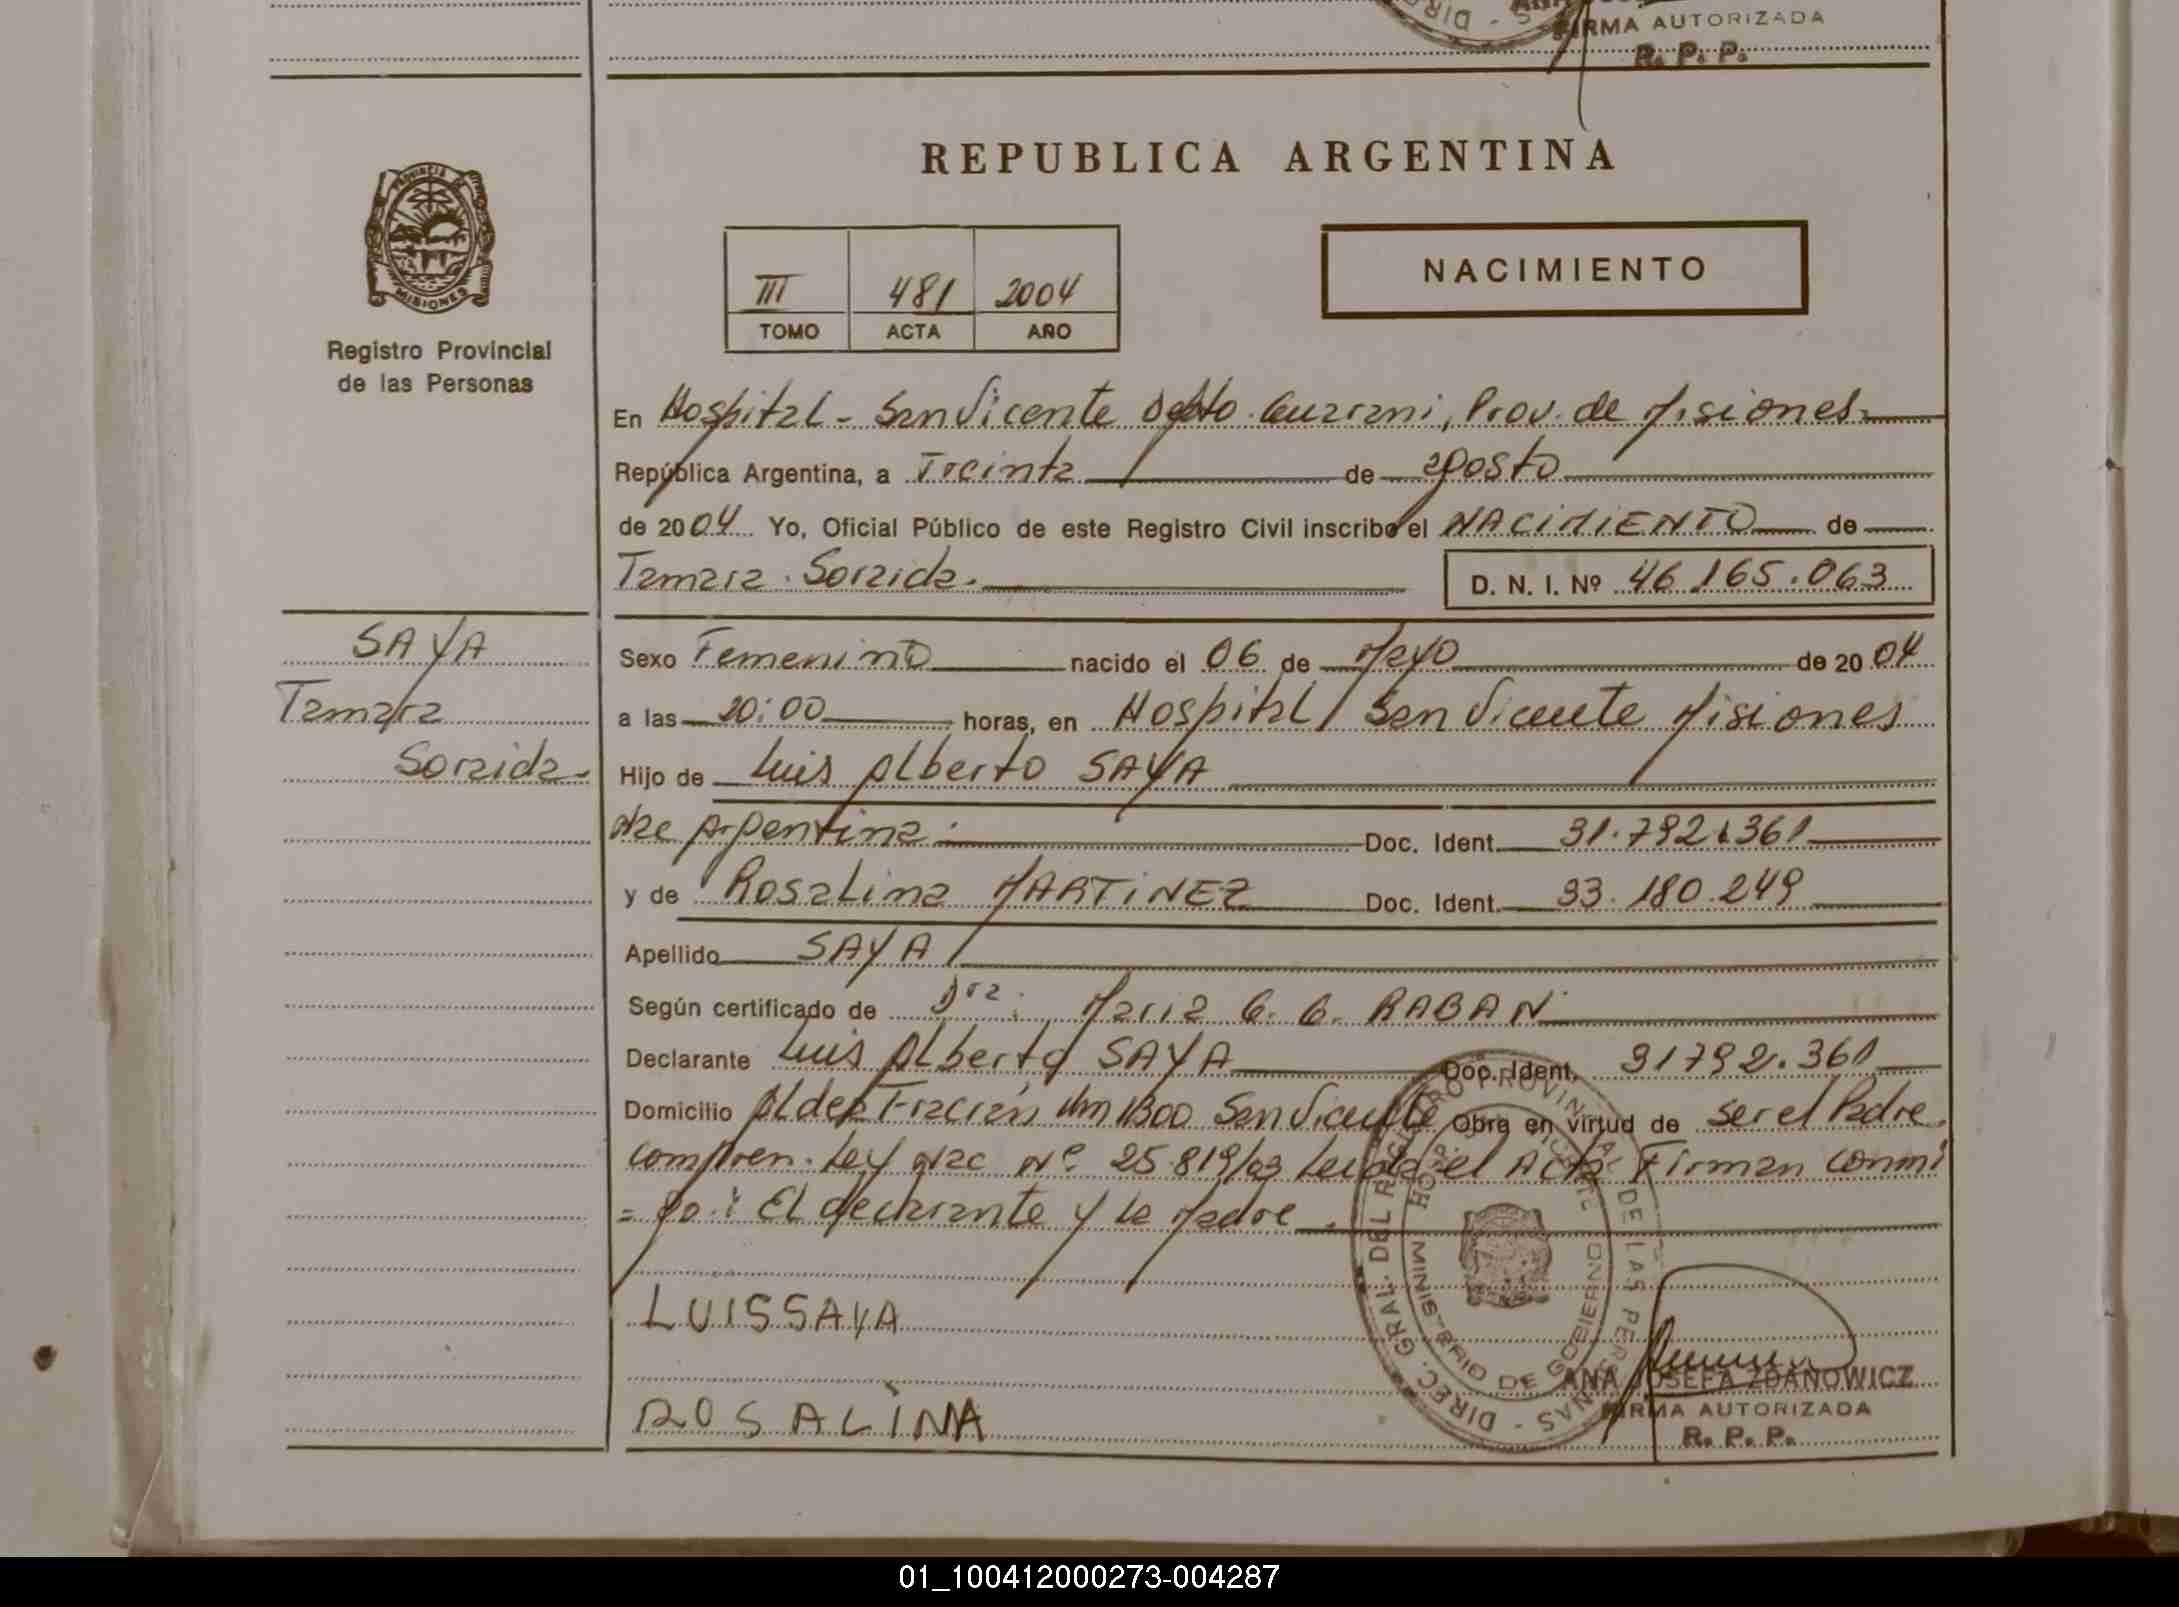 FIRMA AUTORIZADA
R. P. P.
REPUBLICA ARGENTINA
PROVINCIA DE
MISIONES
Registro Provincial
de las Personas
III 481 2004
TOMO ACTA AÑO
NACIMIENTO
En Hospital - San Vicente Dpto. Guarani, Prov. de Misiones
República Argentina, a Treinta de agosto
de 2004 Yo, Oficial Público de este Registro Civil inscribo el NACIMIENTO de
Tamara Soraida. D. N. I. Nº 46.165.063
SAYA
Tamara
Soraida.
Sexo Femenino nacido el 06 de Mayo de 2004
a las 20:00 horas, en Hospital San Vicente Misiones
Hijo de Luis Alberto SAYA
Nac Argentina. Doc. Ident. 31.792.361
y de Rosalina MARTINEZ Doc. Ident. 33.180.249
Apellido SAYA
Según certificado de Dra. Maria G. G. RABAN
Declarante Luis Alberto SAYA Doc. Ident. 31792.361
Domicilio Aldea Fracran Km 1300 San Vicente Obra en virtud de ser el Padre.
compren. Ley Nac Nº 25.819/03 Leida el Acta Firman conmi
=go: El declarante y la Madre.
LUIS SAYA
ROSALINA
DIREC. GRAL. DEL REGISTRO PROVINCIAL DE LAS PERSONAS -
HOSP. VICENTE
MINISTERIO DE GOBIERNO
ANA JOSEFA ZDANOWICZ
FIRMA AUTORIZADA
R. P. P.
01_100412000273-004287